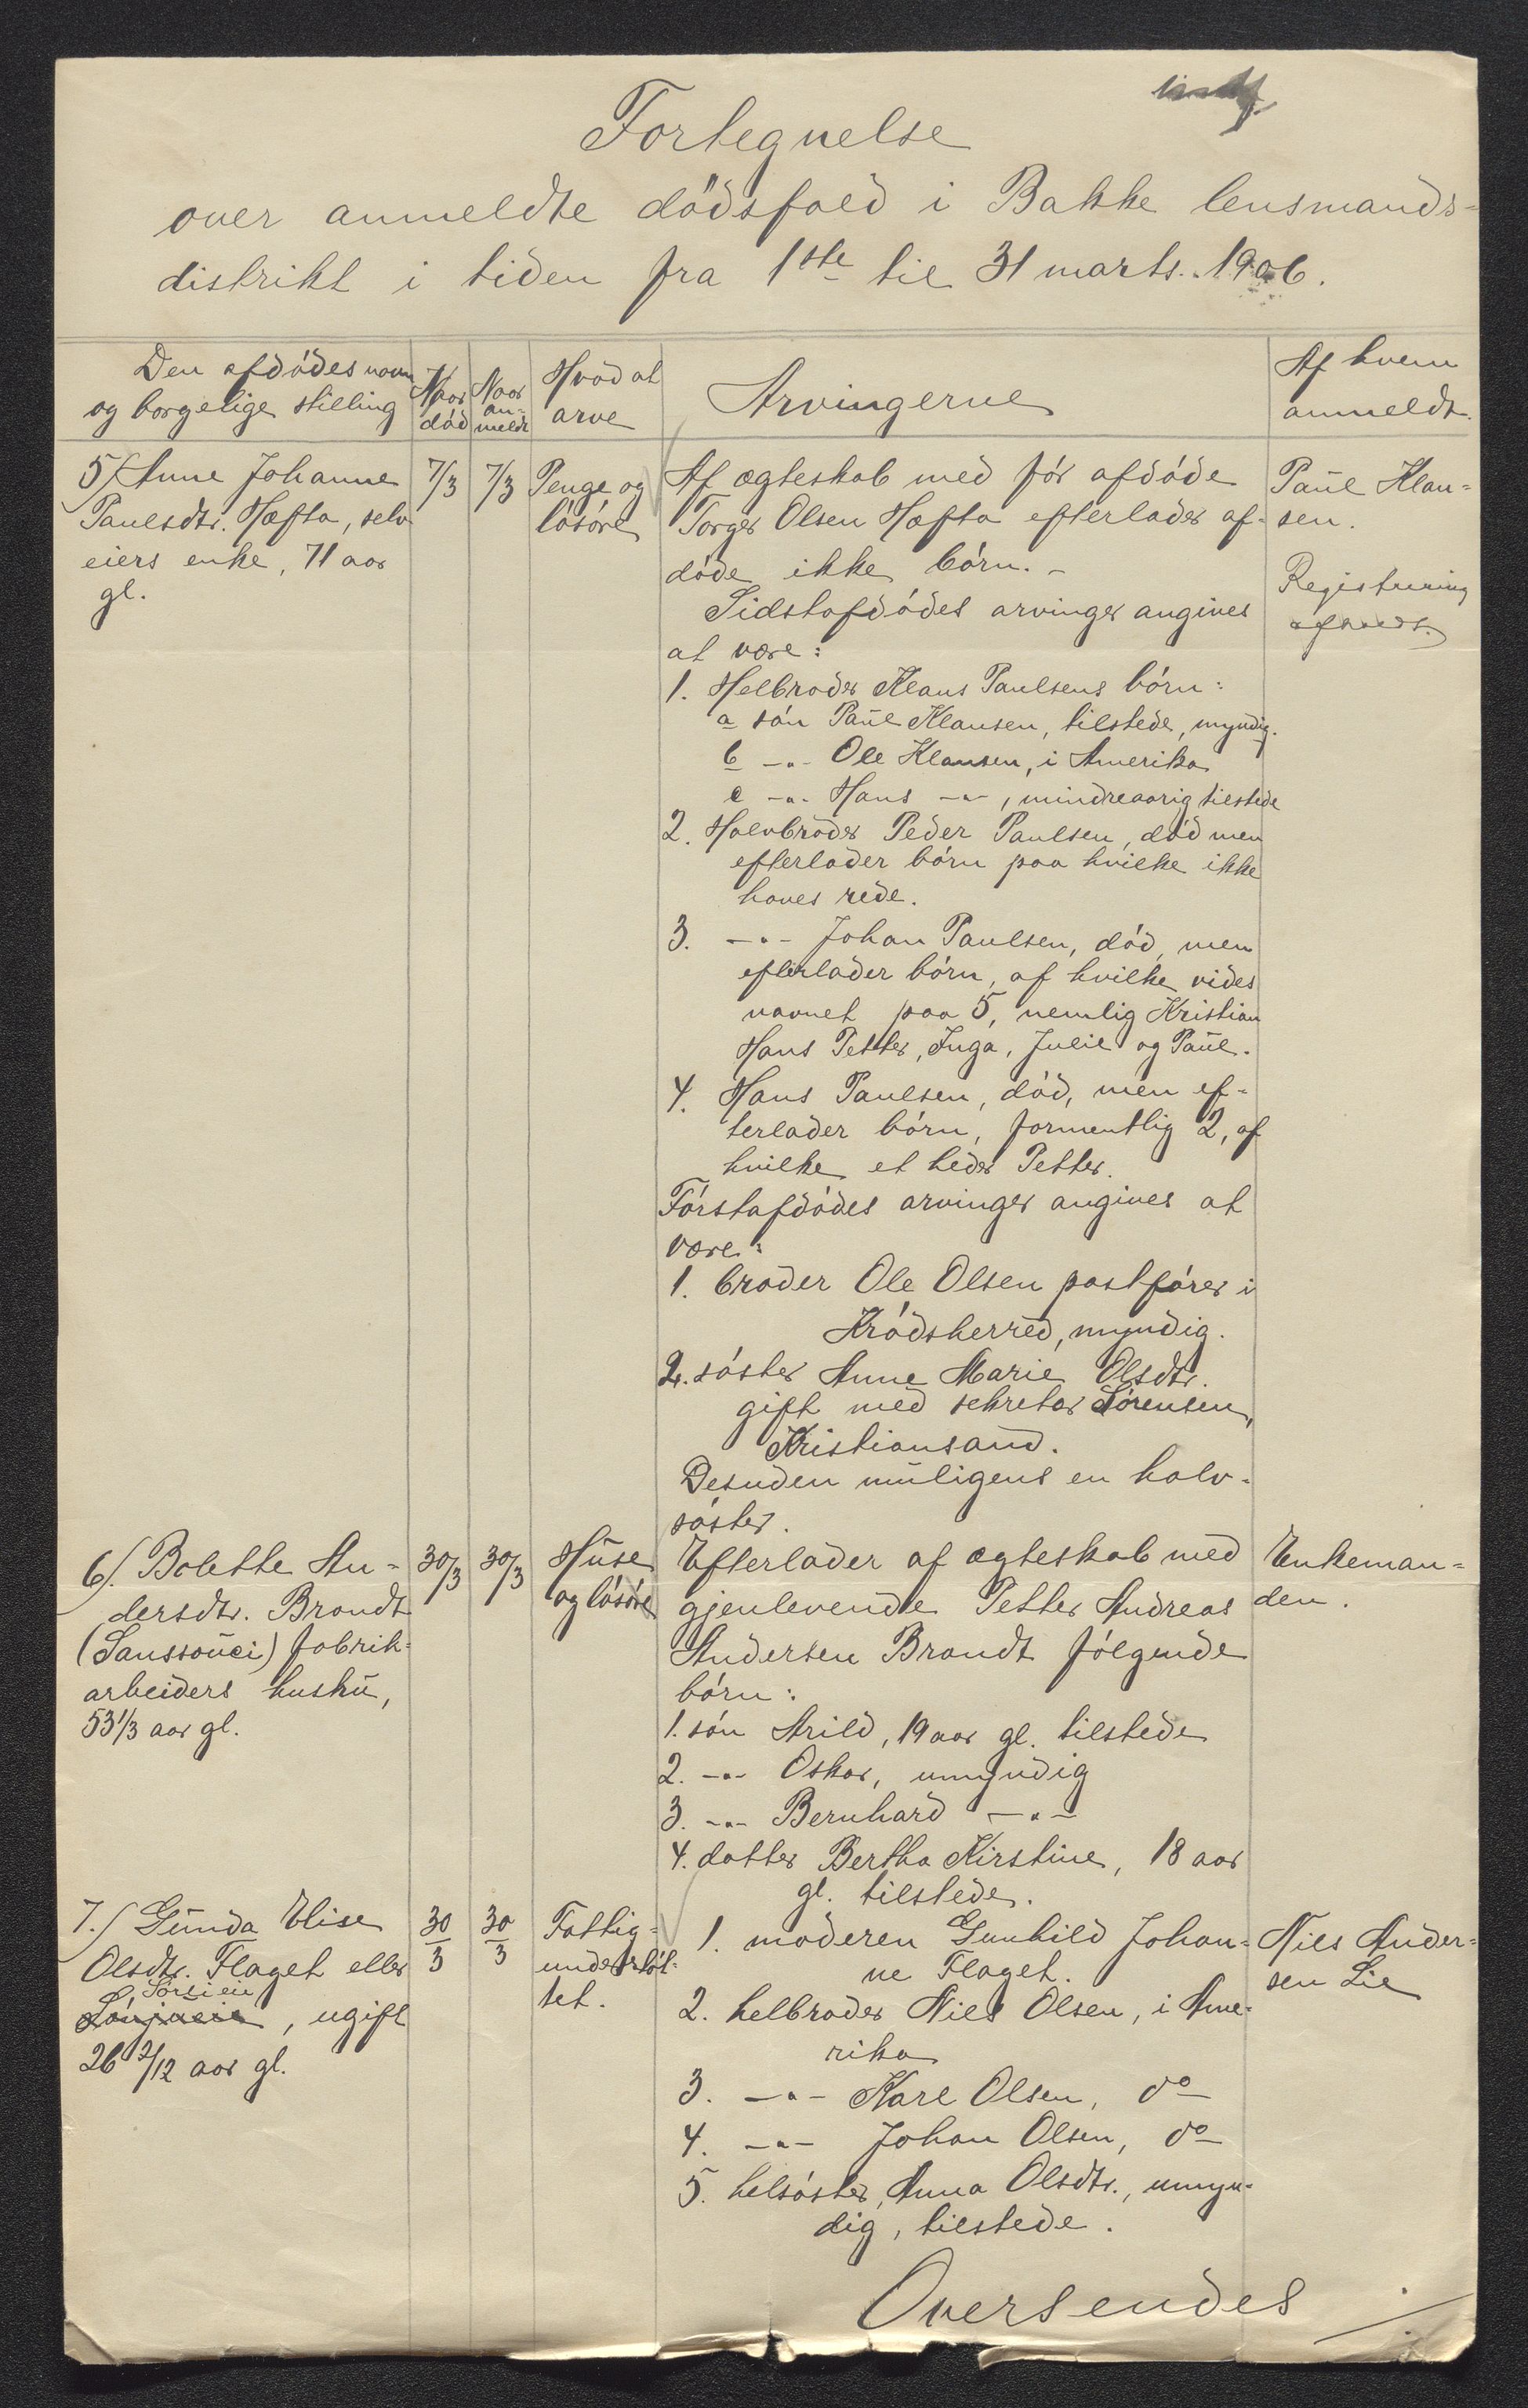 Fortegnelse
over anmeldte dödsfald i Bakke lensmands-
distrikt i tiden fra 1ste til 31 marts 1906.
Den afdödes navn
og borgelige stilling
Naar
död
Naar
an-
meldt
Hvad at
arve
Arvingerne
Af hvem
anmeldt.
5/ Anne Johanne
Paulsdtr. Hæfta, selv-
eiers enke, 71 aar
gl.
7/3
7/3
Penge og
lösöre
Af ægteskab med för afdöde
Torger Olsen Hæfta efterlader af-
döde ikke börn. -
Sidstafdödes arvinger angives
at være:
1. Helbroder Klaus Paulsens börn:
a sön Paul Klausen, tilstede, myndig.
b -"- Ole Klausen, i Amerika
c -"- Hans -"-, mindreaarig tilstede
2. Halvbroder Peder Paulsen, död men
efterlader börn paa hvilke ikke
haves rede.
3. -"- Johan Paulsen, död, men
efterlader börn, af hvilke vides
navnet paa 5, nemlig Kristian
Hans Petter, Inga, Julie og Paul.
4. Hans Paulsen, död, men ef-
terlader börn, formentlig 2, af
hvilke et heder Petter.
Förstafdödes arvinger angives at
være:
1. broder Ole Olsen postförer i
Krödsherred, myndig.
2. söster Anne Marie Olsdtr.
gift med sekretær Sörensen,
Kristiansand.
Desuden muligens en halv-
söster.
Paul Klau-
sen.
Registrering
afholdt.
6/. Bolette An-
dersdtr. Brandt
(Sanssouci) fabrik-
arbeiders hustru,
53 1/3 aar gl.
30/3
30/3
Huse
og lösöre
Efterlader af ægteskab med
gjenlevende Petter Andreas
Andersen Brandt fölgende
börn:
1. sön Arild, 19 aar gl. tilstede
2. -"- Oskar, umyndig
3. -"- Bernhard -"-
4. datter Bertha Kirstine, 18 aar
gl. tilstede.
Enkeman-
den.
7./ Gunda Elise
Olsdtr. Flaget eller
, ugift
26 2/12 aar gl.
30/3
30/3
Fattig-
understöt-
tet.
1. moderen Gunhild Johan-
ne Flaget.
2. helbroder Niels Olsen, i Ame-
rika
3. -"- Karl Olsen, do
4. -"- Johan Olsen, do
5. helsöster, Anna Olsdtr., umyn-
dig, tilstede.
Niels Ander-
sen Lie
Oversendes